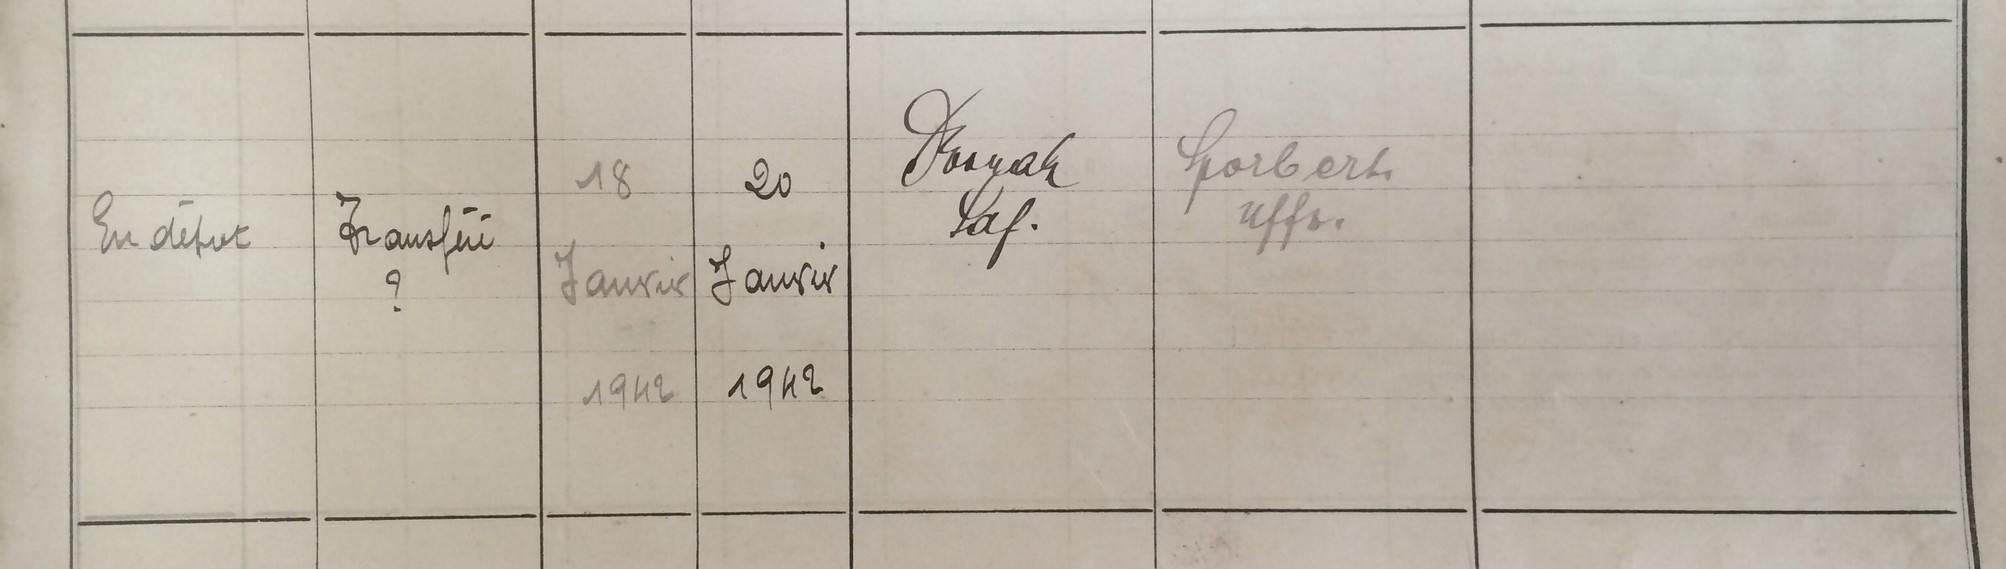 En dépot
Transféré
?
18
Janvier
1942
20
Janvier
1942
Dvorjak
Saf.
Sporbert
Uffz.